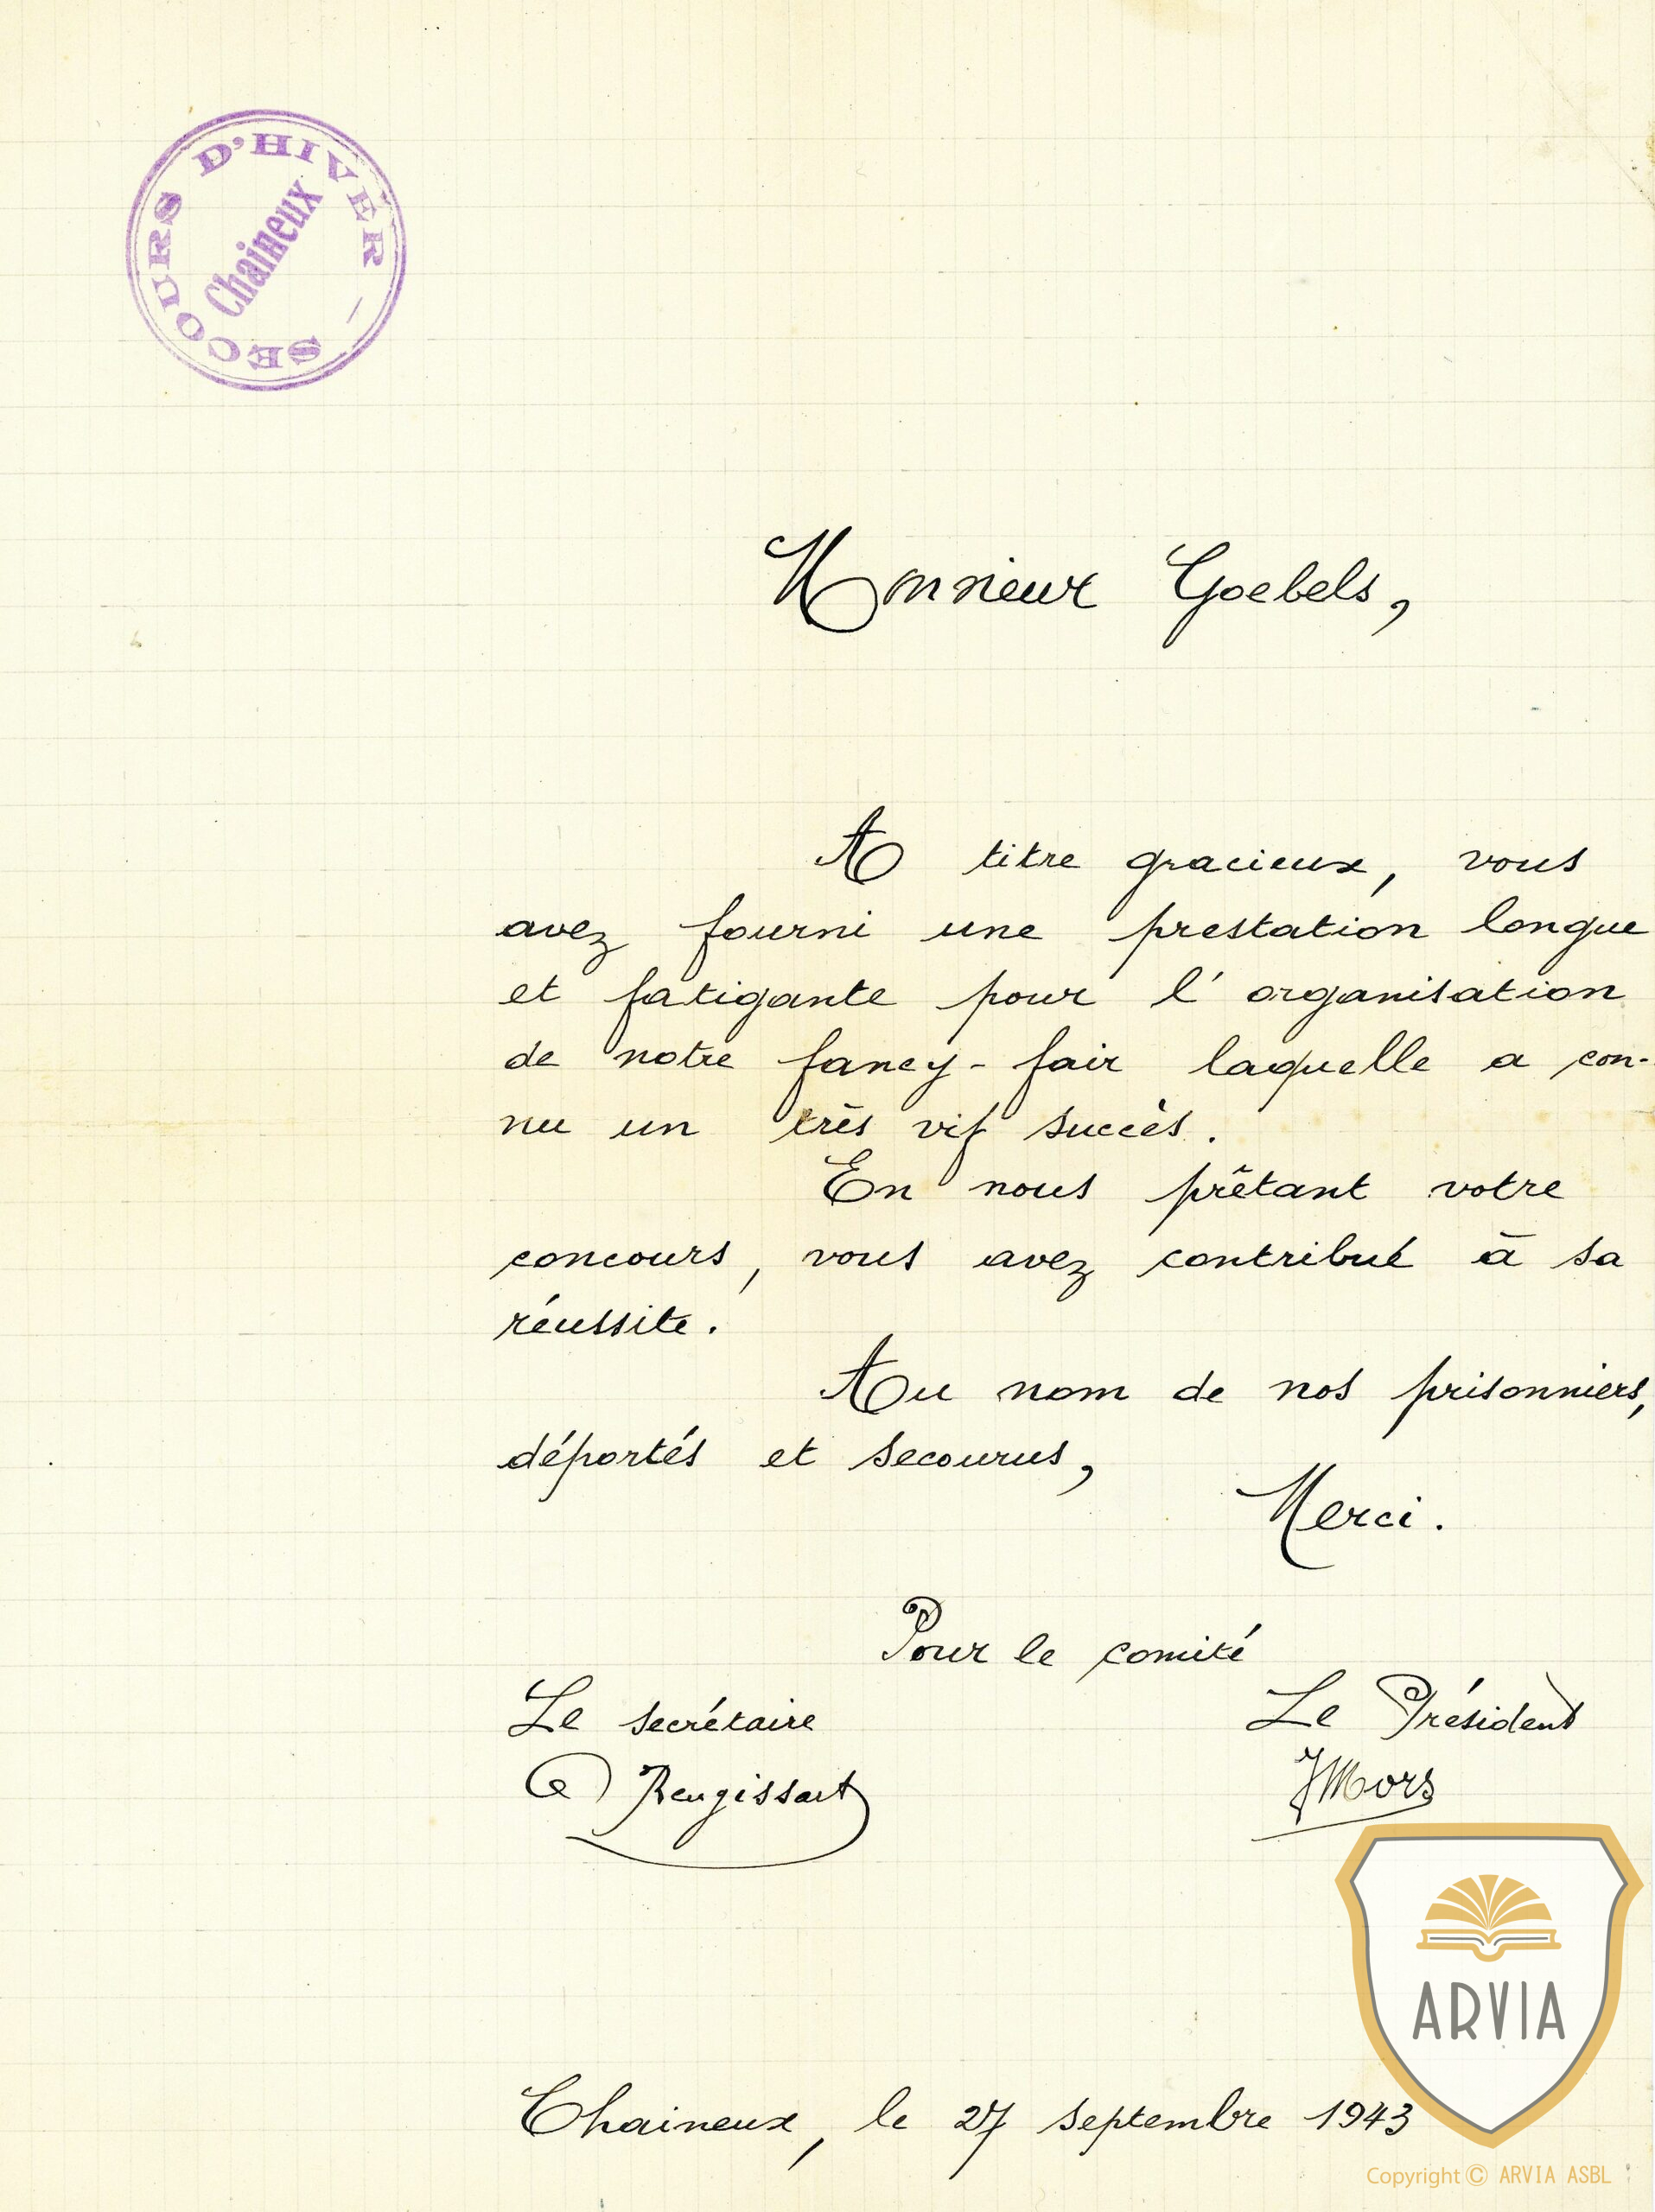 SECOURS D'HIVER -
Chaineux
Monsieur Goebels,
A titre gracieux, vous
avez fourni une prestation longue
et fatigante pour l'organisation
de notre fancy-fair laquelle a con-
nu un très vif succès.
En nous prêtant votre
concours, vous avez contribué à sa
réussite.
Au nom de nos prisonniers,
déportés et secourus,
Merci.
Pour le comité
Le secrétaire Le Président
Rengissart JMors
ARVIA
Chaineux, le 27 septembre 1943
Copyright © ARVIA ASBL